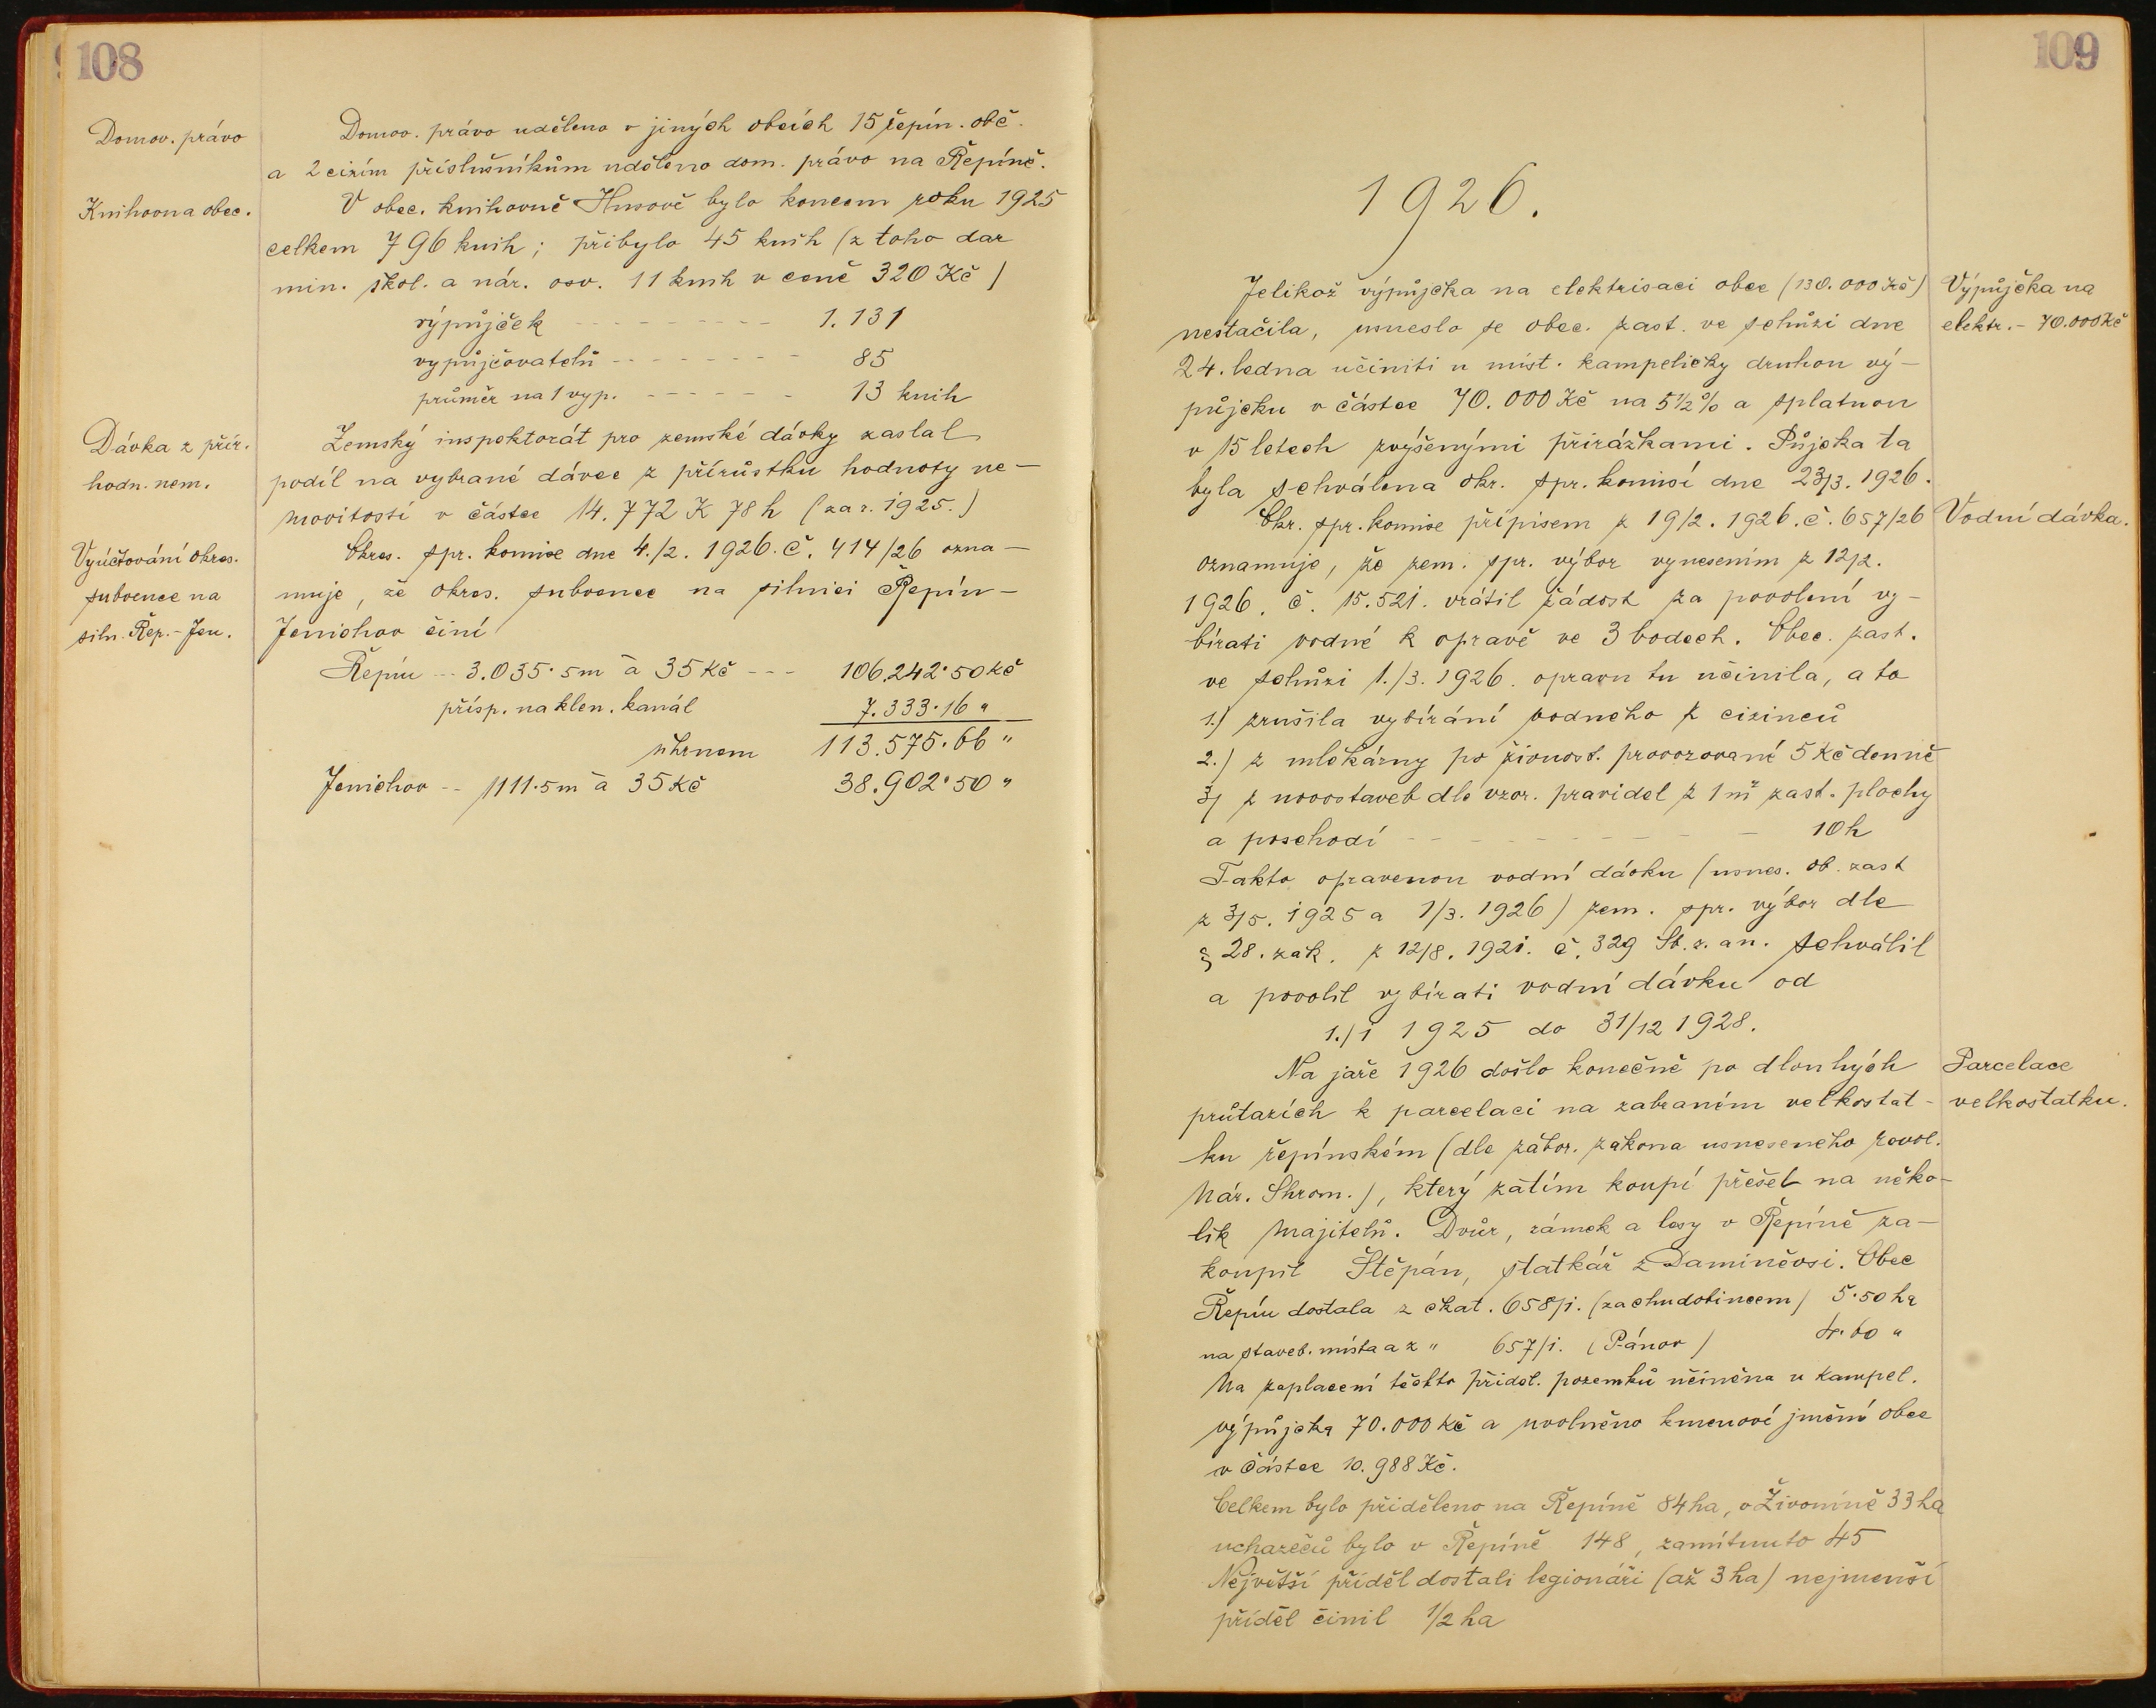 108
Domov. právo
Domov. právo uděleno v jiných obcích 15 řepín. obč.
a 2 cizím příslušníkům uděleno dom. právo na Řepíně.
Knihovna obec.
V obec. knihovně Husově bylo koncem roku 1925
celkem 796 knih; přibylo 45 knih (z toho dar
min. škol. a nár. osv. 11 knih v ceně 320 Kč)
výpůjček - - - - - - - - - 1.131
vypůjčovatelů - - - - - - - - 85
průměr na 1 vyp. - - - - - - - 13 knih
Dávka z přír.
hodn. nem.
Zemský inspektorát pro zemské dávky zaslal
podíl na vybrané dávce z přírůstku hodnoty ne-
movitostí v částce 14.772 K 78 h (za r. 1925.)
Vyúčtování okres.
subvence na
siln. Řep.-Jen.
Okres. spr. komise dne 4./2. 1926. č. 414/26 ozna-
muje, že okres. subvence na silnici Řepín-
Jenichov činí
Řepín -- 3.035·5 m à 35 Kč --- 106.242·50 Kč
přísp. na klen. kanál 7.333·16 "
úhrnem 113.575·66 "
Jenichov -- 1111·5 m à 35 Kč 38.902·50 "
109
1926.
Jelikož výpůjčka na elektrisaci obce (130.000 Kč)
nestačila, usneslo se obec. zast. ve schůzi dne
24. ledna učiniti u míst. kampeličky druhou vý-
půjčku v částce 70.000 Kč na 5½% a splatnou
v 15 letech zvýšenými přirážkami. Půjčka ta
byla schválena okr. spr. komisí dne 23/3. 1926.
Výpůjčka na
elektr. - 70.000 Kč
Okr. spr. komise přípisem z 19/2. 1926. č. 657/26
Vodní dávka.
oznamuje, že zem. spr. výbor vynesením z 12/2.
1926. č. 15.521. vrátil žádost za povolení vy-
bírati vodné k opravě ve 3 bodech. Obec. zast.
ve schůzi 1./3. 1926. opravu tu učinila, a to
1.) zrušila vybírání vodného z cizinců
2.) z mlékárny po živnost. provozování 5 Kč denně
3) z novostaveb dle vzor. pravidel z 1 m² zast. plochy
a poschodí - - - - - - - - 10 h
Takto opravenou vodní dávku (usnes. ob. zast
z 3/5. 1925 a 1/3. 1926) zem. spr. výbor dle
§ 28. zák. z 12/8. 1921. č. 329 Sb. z. a n. schválil
a povolil vybírati vodní dávku od
1./1 1925 do 31/12 1928.
Na jaře 1926 došlo konečně po dlouhých
průtazích k parcelaci na zabraném velkostat-
ku řepínském (dle zábor. zákona usneseného revol.
Nár. Shrom.), který zatím koupí přešel na něko-
lik majitelů. Dvůr, zámek a lesy v Řepíně za-
koupil Štěpán, statkář z Daminěvsi. Obec
Parcelace
velkostatku.
Řepín dostala z čkat. 658/1. (za chudobincem) 5·50 ha
na staveb. místa a z " 657/1. (Pánov) 4·60 "
Na zaplacení těchto příděl. pozemků učiněna u kampel.
výpůjčka 70.000 Kč a uvolněno kmenové jmění obce
v částce 10.988 Kč.
Celkem bylo přiděleno na Řepíně 84 ha, v Živoníně 33 ha
uchazečů bylo v Řepíně 148, zamítnuto 45
Největší příděl dostali legionáři (až 3 ha) nejmenší
příděl činil 1/2 ha